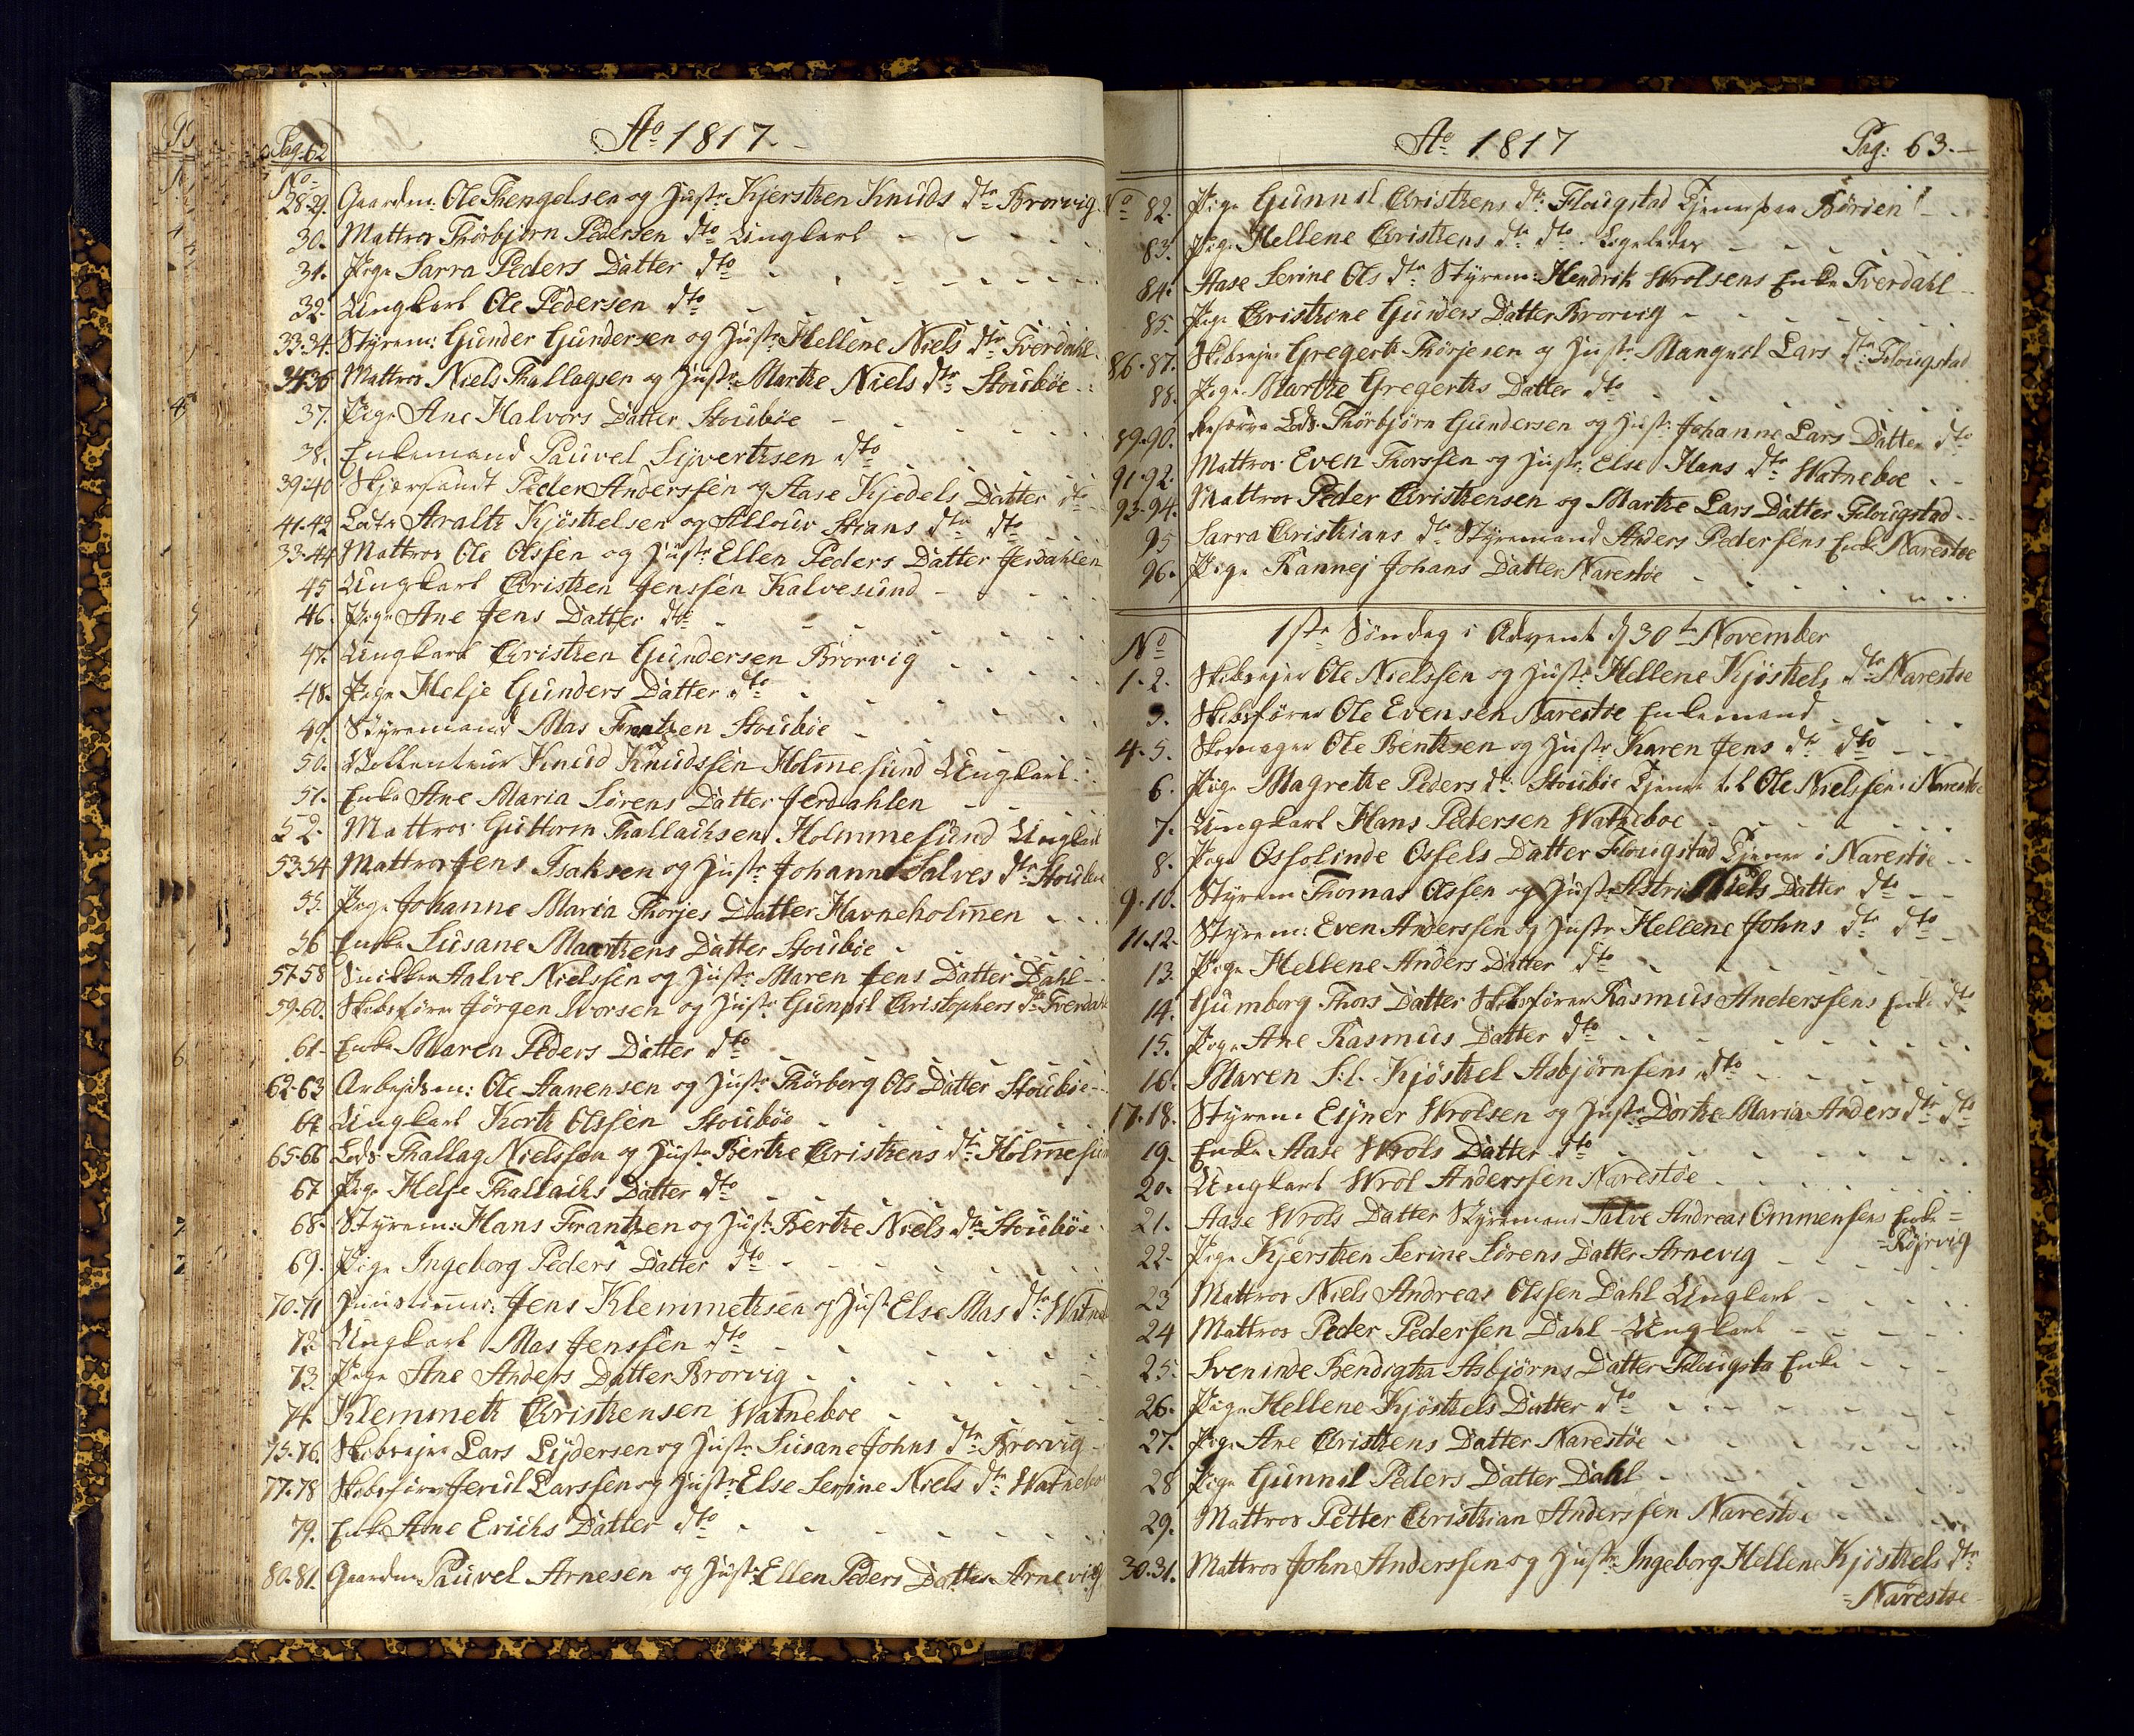 Pag. 62
Ao 1817.
No
28-29. Gaardm: Ole Thengelsen og Hustr Kjersthen Knuds dtr Brorvig.
30. Mattros Thorbjørn Pedersen dto Ungkarl
31. Pige Sarra Peders Datter dto
32. Ungkarl Ole Pedersen dto
33-34. Styrem: Gunder Gundersen og Hustr Hellene Niels dtr Tverdahl
35-36 Mattros Niels Thallagsen og Hustr Marthe Niels dtr Stoubøe
37. Pige Ane Halvors Datter Stoubøe
38. Enkemand Pauvel Syverthsen dto
39-40 Skjersandt Peder Anderssen og Aase Kjedels Datter dto
41-42 Lods Aralth Kjøsthelsen og Allouv Stians dtr dto
33-44 Mattros Ole Olssen og Hustr Ellen Peders Datter Jerdahlen
45 Ungkarl Christhen Jenssen Kalvesund
46. Pige Ane Jens Datter dto
47. Ungkarl Christhen Gundersen Brorvig
48. Pige Helje Gunders Datter dto
49. Styremand Mas Frantzen Stoubøe
50. Vollenteur Knud Knudssen Holmesund Ungkarl
51. Enke Ane Maria Sørens Datter Jerdahlen
52. Mattros Guttorm Thallachsen Holmmesund Ungkarl
53-54 Mattros Jens Isaksen og Hustr Johanne Salves dtr Stoubøe
55. Pige Johanne Maria Thorjes Datter Havneholmen
56 Enke Susane Marthens Datter Stoubøe
57-58 Snikker Aalve Nielssen og Hustr Maren Jens Datter Dahl
59-60. Skibsfører Jørgen Ivorsen og Hustr Gunnil Christophers dtr Tverdahl
61- Enke Maren Peders Datter dto
62-63 Arbejdsm: Ole Aanensen og Hustr Thorborg Ols Datter Stoubøe
64 Ungkarl Korth Olssen Stoubøe
65-66 Lods Thallag Nielssen og Hustr Berthe Christhens dtr Holmesund
67 Pige Helje Thallachs Datter dto
68- Styrem: Hans Frantzen og Hustr Berthe Niels dtr Stoubøe
69. Pige Ingeborg Peders Datter dto
70-71 Huustimmer: Jens Klemmethsen og Hustr Else Mas dtr Watneboe
72 Ungkarl Mas Jenssen dto
73. Pige Ane Anders Datter Brorvig
74. Klemmeth Christhensen Watneboe
75-76. Skibsejer Lars Lydersen og Hustr Susane Johns dtr Brorvig
77-78 Skibsfører Jerul Larssen og Hustr Else Serine Niels dtr Watneboe
79. Enke Ane Erichs Datter dto
80-81. Gaardm: Pauvel Arnesen og Hustr Ellen Peders Datter Arnevig
Ao 1817
Pag: 63.
No 82. Pige Gunnil Christhens dtr Flougstad Tjener paa Børøen
83. Pige Hellene Christhens dtr dto Ligeledes
84. Aase Serine Ols dtr Styrem: Hendrik Wrolsens Enke Tverdahl
85. Pige Christhine Gunders Datter Brorvig
86-87. Skibsejer Gregerth Thorjesen og Hustr Mangnil Lars dtr Flougstad
88. Pige Marthe Gregerths Datter dto
89-90. Reserve Lods Thorbjørn Gundersen og Hustr Johanne Lars Datter dto
91-92. Mattros Even Thorssen og Hustr Else Hans dtr Watneboe
93-94. Mattros Peder Christhensen og Marthe Lars Datter Flougstad
95 Sarra Christhians dtr Styremand Anders Pedersens Enke Narestøe
96. Pige Rannej Johans Datter Narestøe
1ste Søndag i Advent d 30te November
No
1-2. Skibsejer Ole Nielssen og Hustr Hellene Kjøsthels dtr Narestøe
3. Skibsfører Ole Evensen Narestøe Enkemand
4-5. Skomager Ole Benthsen og Hustr Karen Jens dtr dto
6. Pige Magrethe Peders dtr Stoubøe Tjener hos Ole Nielssen i Narestøe
7. Ungkarl Hans Pedersen Watneboe
8. Pige Ossolinde Ossels Datter Flougstad Tjener i Narestøe
9-10. Styrem Thomas Olssen og Hustr Astri Niels Datter dto
11-12. Styrem: Even Anderssen og Hustr Hellene Johns dtr dto
13. Pige Hellene Anders Datter dto
14. Gumborg Thors Datter Skibsfører Rasmus Anderssens Enke dto
15. Pige Ane Rasmus Datter dto
16. Maren S:l. Kjøsthel Asbjørnsens dto
17-18. Styrem: Ejner Wrolsen og Hustr Dorthe Maria Anders dtr dto
19. Enke Aase Wrols Datter dto
20. Ungkarl Wrol Anderssen Narestøe
21. Aase Wrols Datter Styremand Salve Andreas Ommensens Enke =
=Røjrvig
22. Pige Kjersthen Serine Sørens Datter Arnevig
23 Mattros Niels Andreas Olssen Dahl Ungkarl
24 Mattros Peder Pedersen Dahl Ungkarl
25. Sveninde Bendigtha Asbjørns Datter Flougsta Enke
26. Pige Hellene Kjøsthels Datter dto
27. Pige Ane Christhens Datter Narestøe
28 Pige Gunnil Peders Datter Dahl
29. Mattros Petter Christhian Anderssen Narestøe
30-31. Mattros John Anderssen og Hustr Ingeborg Hellene Kjøsthels dtr
=Narestøe